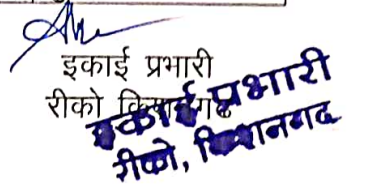 इकाई प्रभारी
रीको किशनगढ
इकाई प्रभारी
रीको, किशनगढ